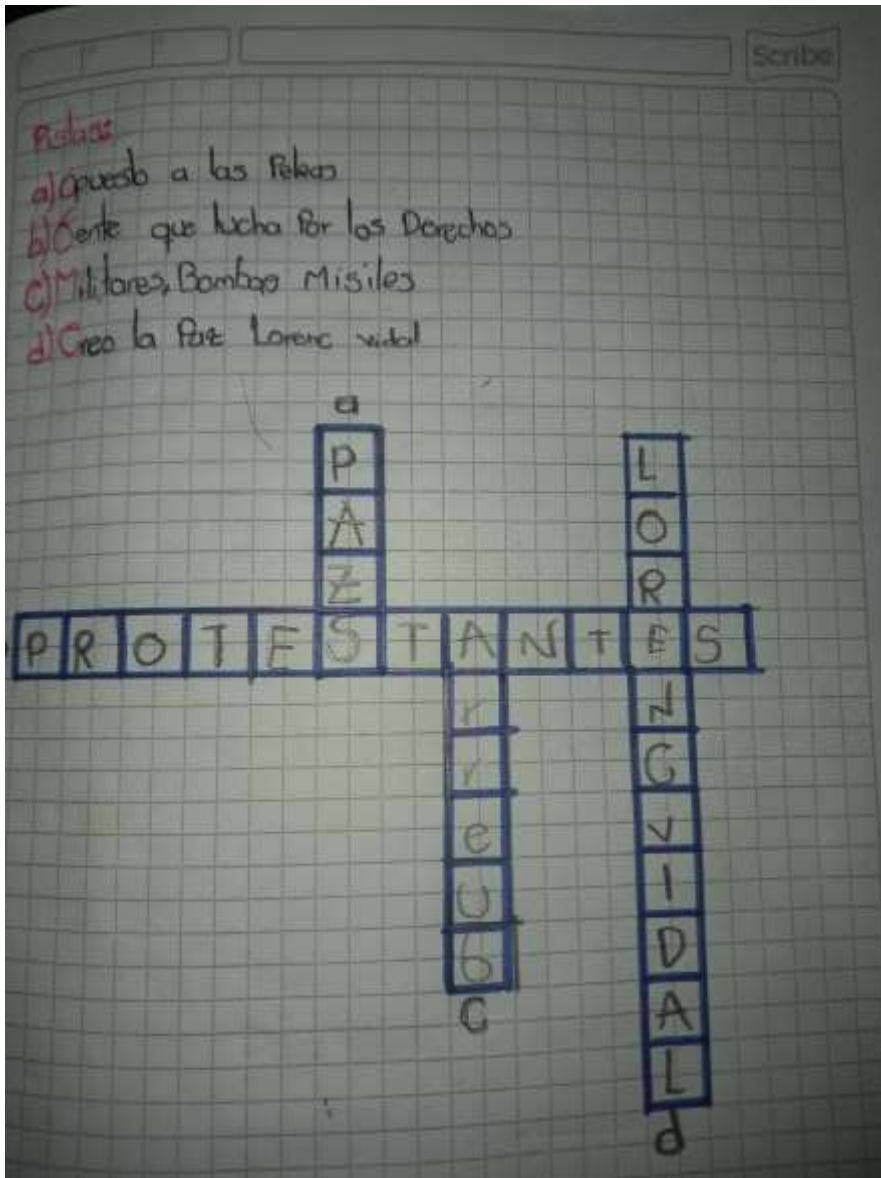 Scribe
Pistas:
a) Opuesto a las Peleas
b) Gente que lucha Por los Derechos
c) Militares, Bombas Misiles
d) Creo la Paz Lorenc vidal
a
P
A
Z
L
O
R
P R O T E S T A N T E S
r
r
e
U
G
C
N
C
V
I
D
A
L
d